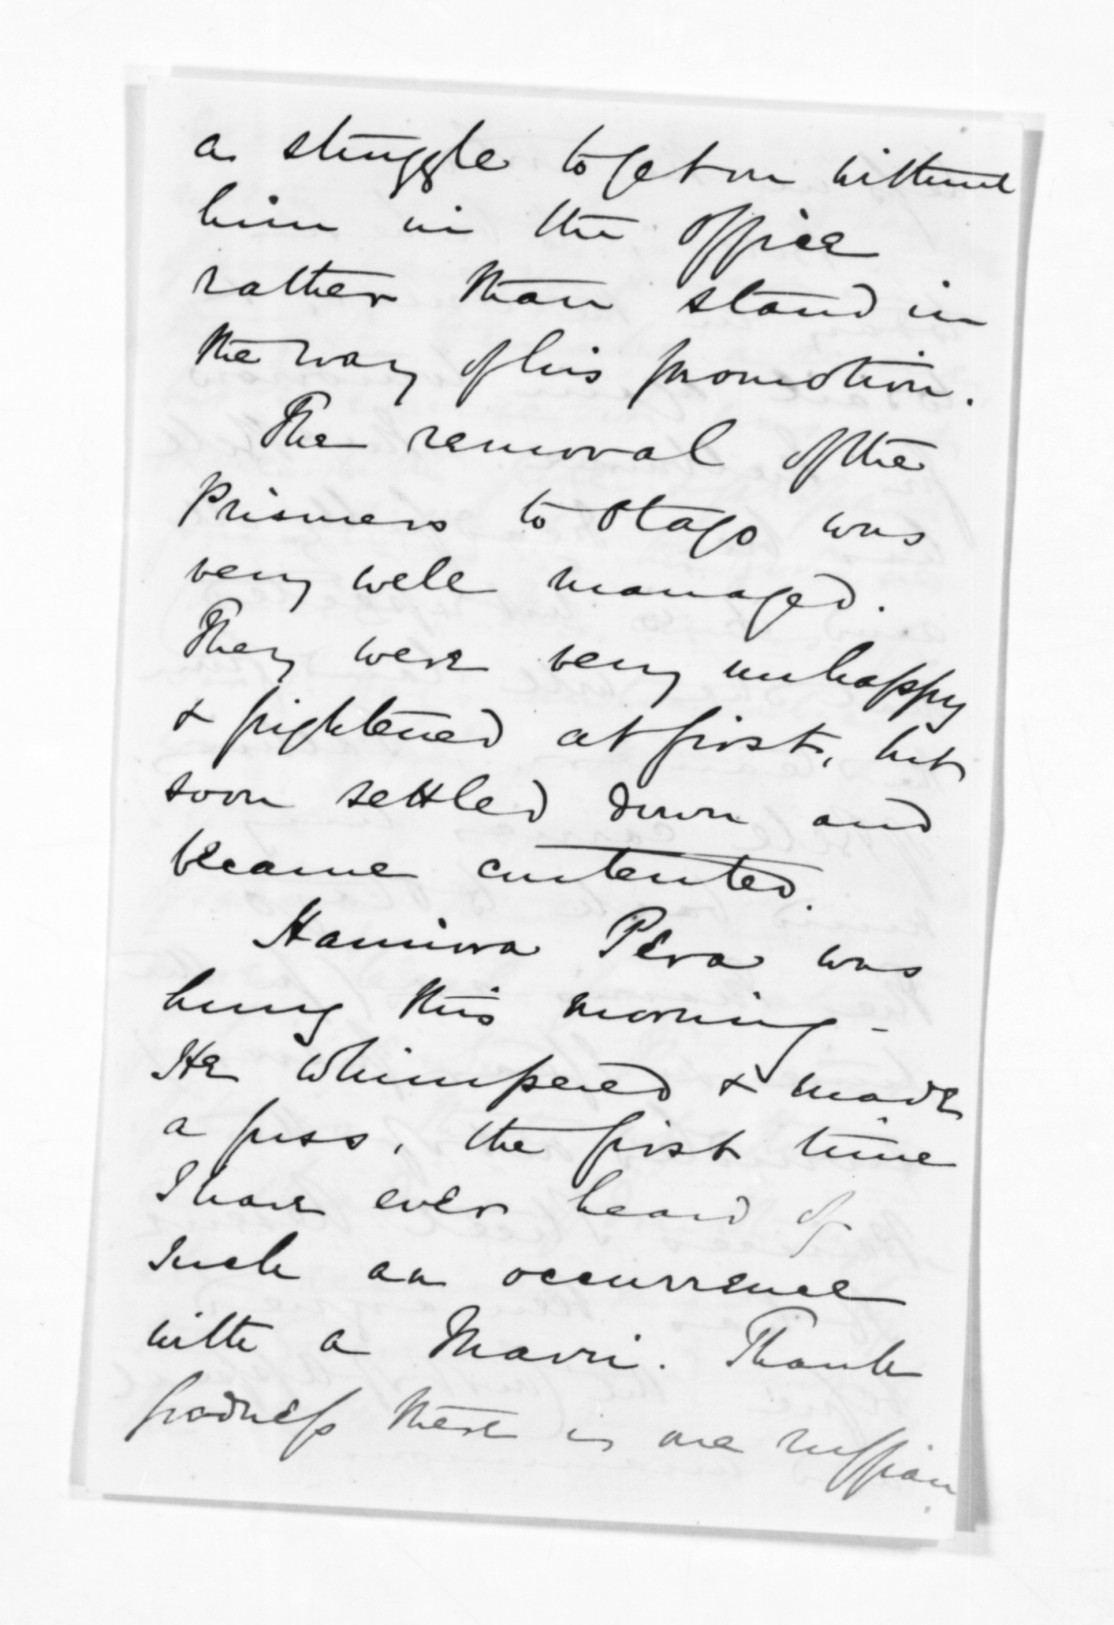 a struggle to get on without
him in the office
rather than stand in
the way of his promotion.
The removal of the
Prisoners to Otago was
very well managed.
They were very unhappy
& frightened at first, but
soon settled down and
became contented.
Hamiora Pera was
hung this morning -
He whimpered & made
a fuss, the first time
I have ever heard of
such an occurrence
with a Maori. Thank
goodness there is one ruffian